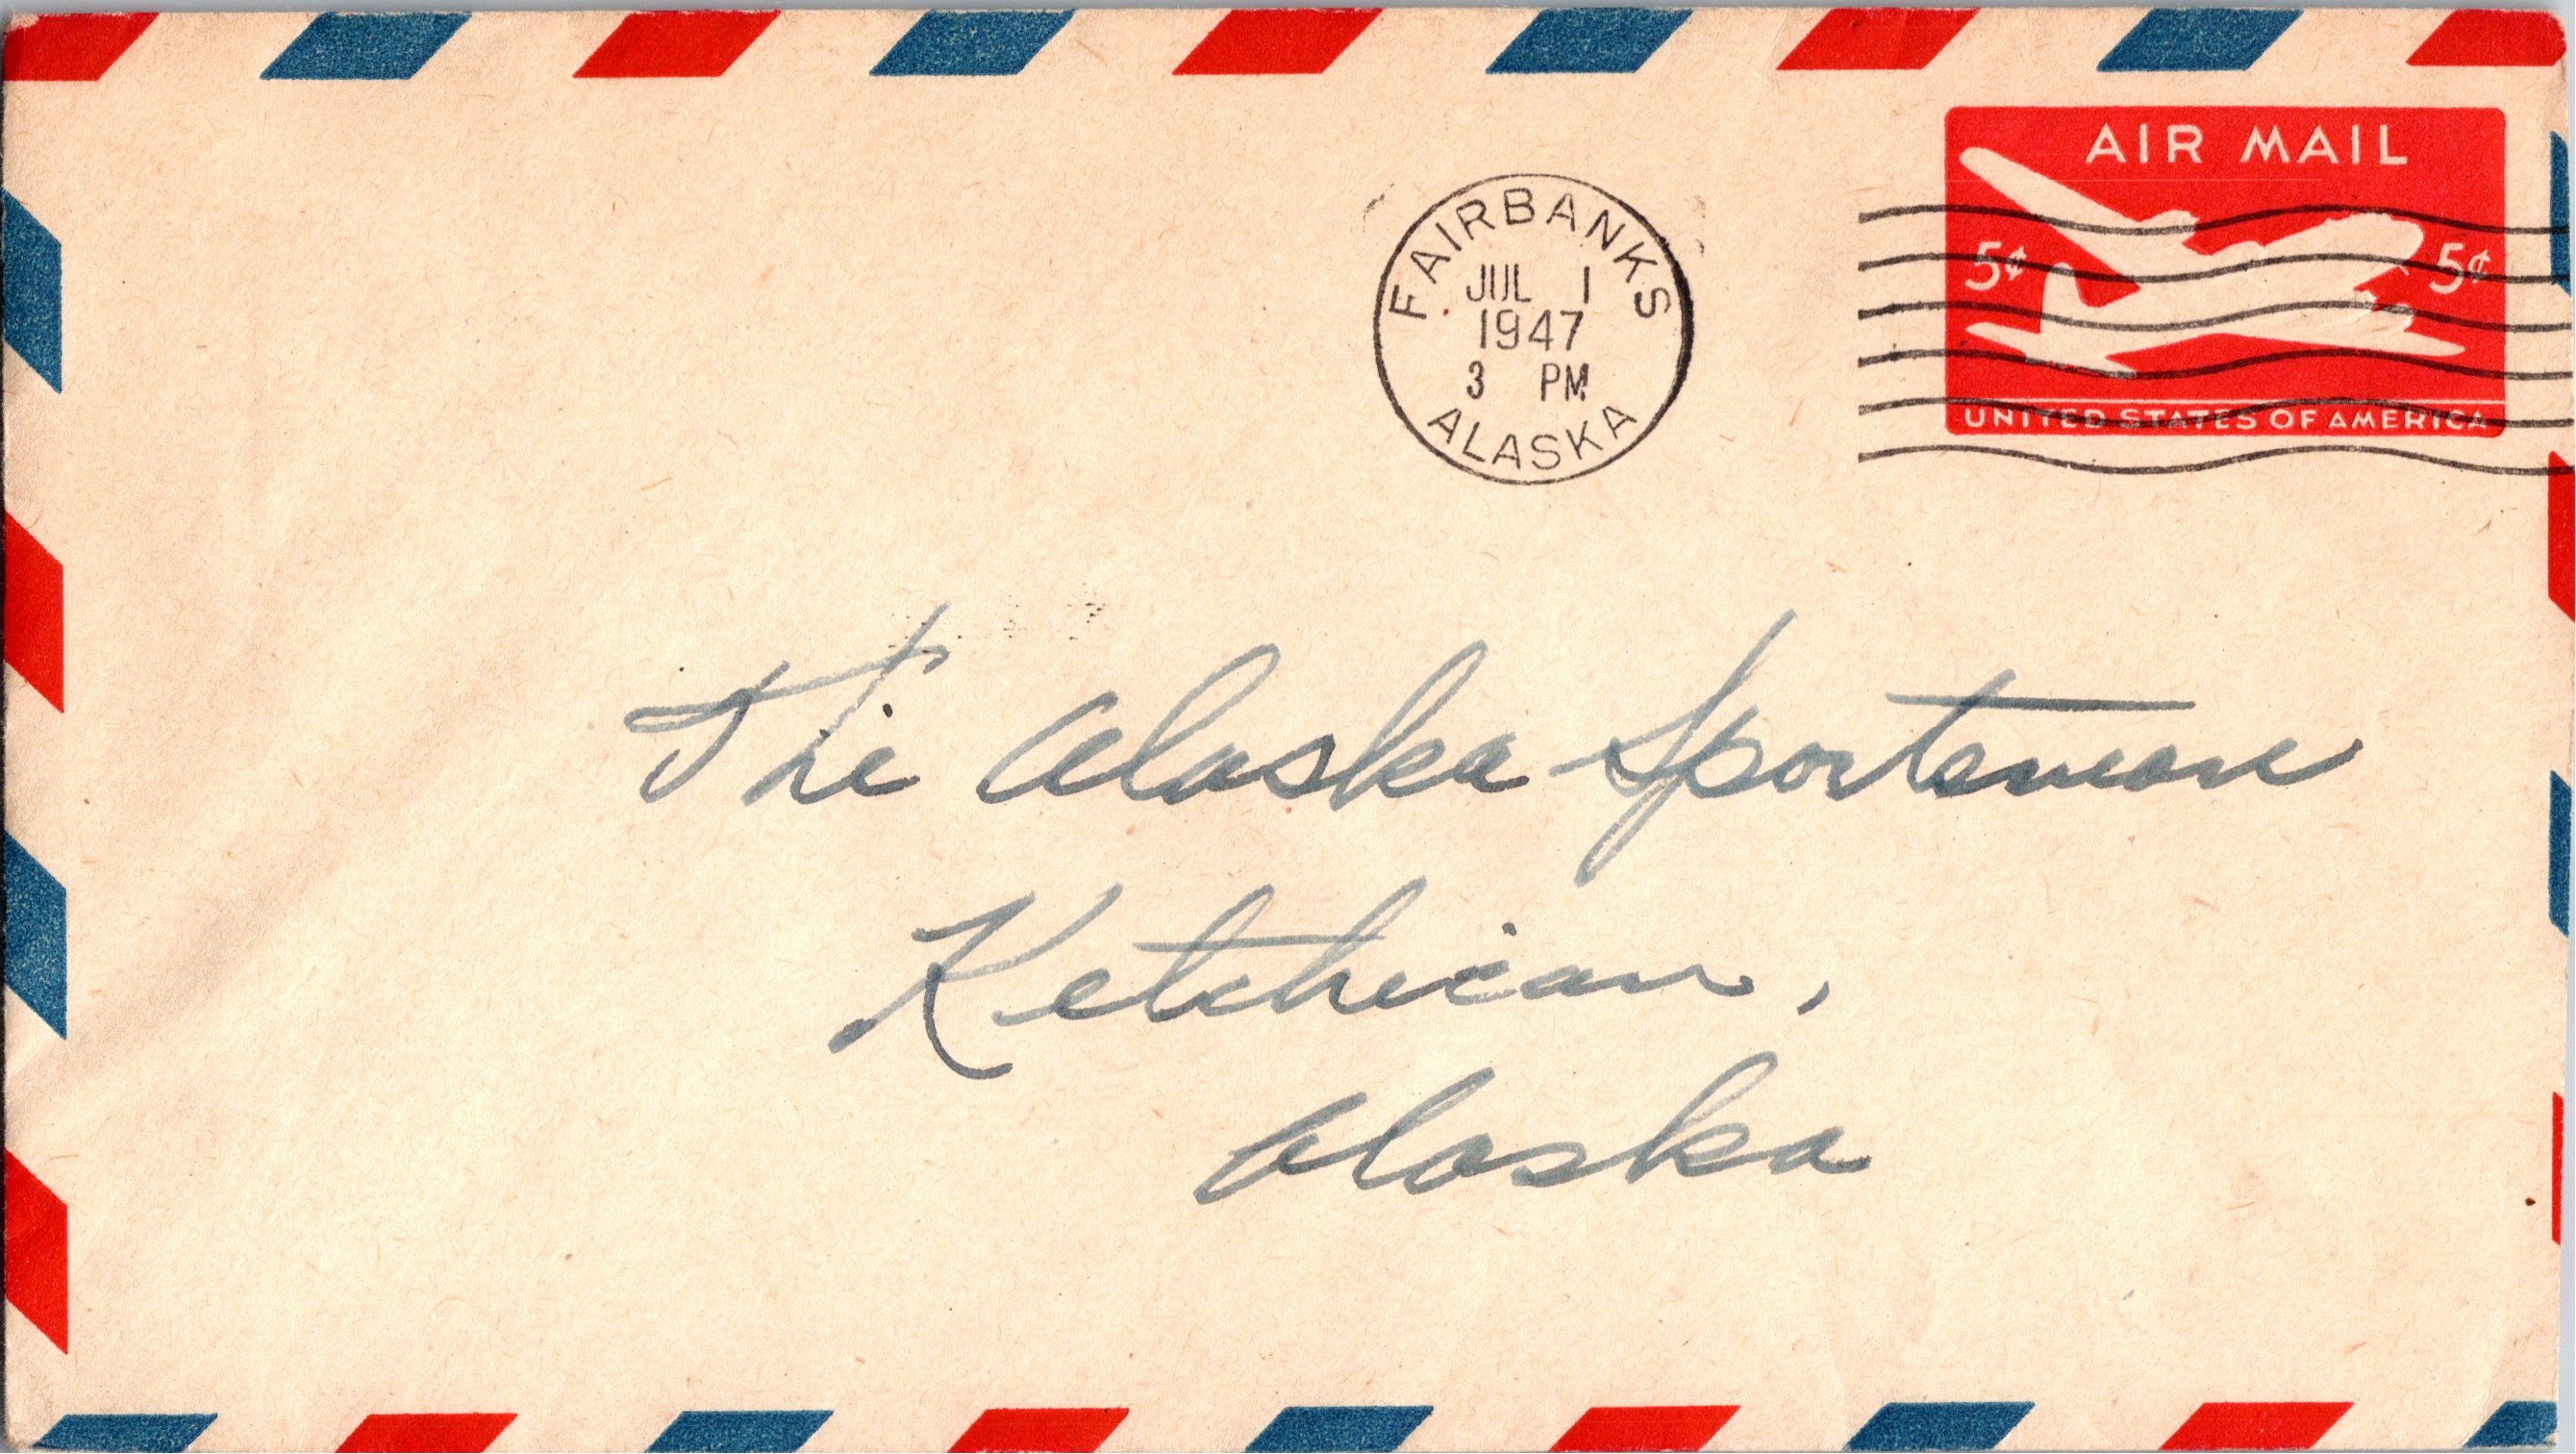 AIR MAIL
5¢ 5¢
UNITED STATES OF AMERICA
FAIRBANKS
JUL 1
1947
3 PM
ALASKA
The Alaska Sportsman
Ketchican,
Alaska